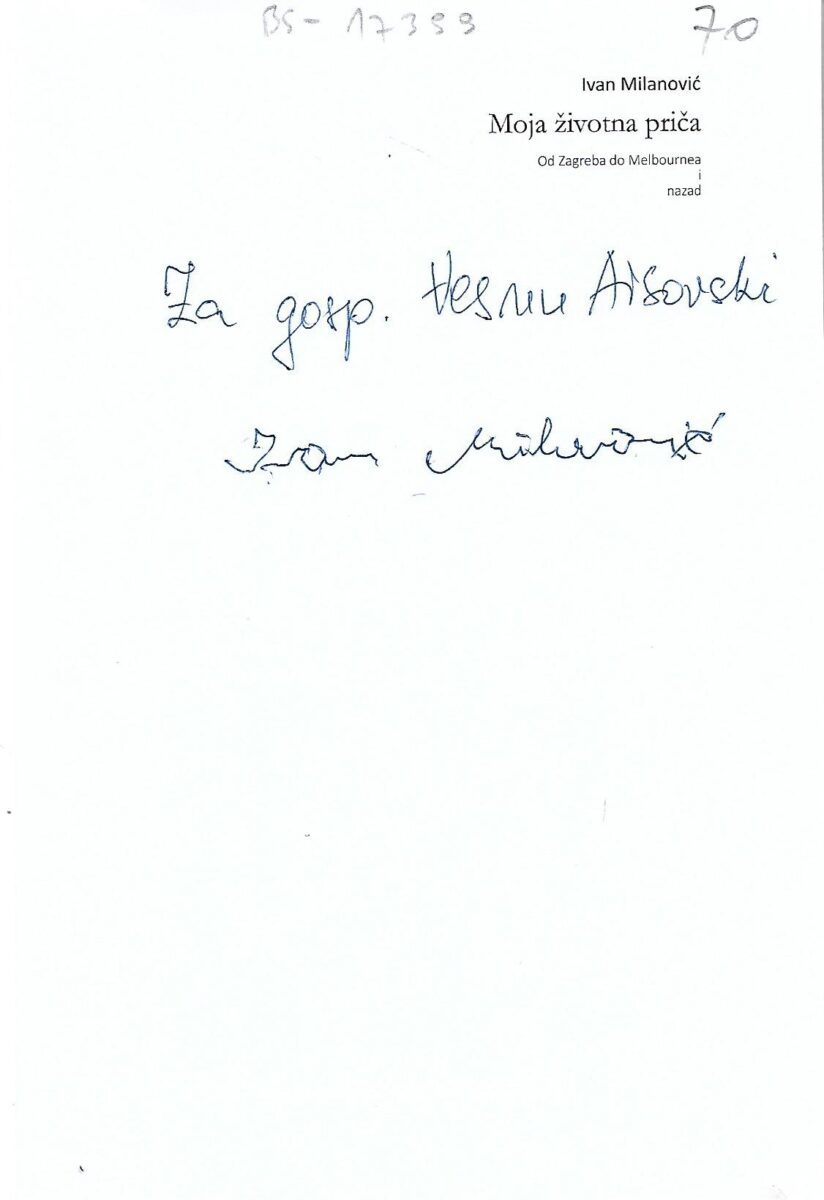 BS-17399 70
Ivan Milanović
Moja životna priča
Od Zagreba do Melbournea
i
nazad
Za gosp. Vesnu Aisovski
Ivan Milanović